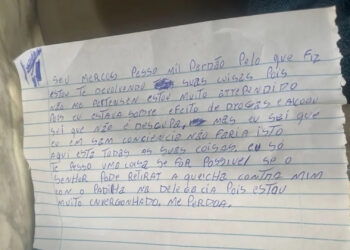 SEU MERCOS PESSO MIL PERDÃO PELO QUE FIZ
ESTOU TE DEVOLVENDO SUAS COISAS POIS
NÃO ME PERTENSEN ESTOU MUITO ARREPENDIDO
POIS EU ESTAVA SOBRE EFEITO DE DROGAS E ALCOOU
SEI QUE NÃO É DESCUPA, MAS EU SEI QUE
EU EM SAM CONCIÊNCIA NÃO FARIA ISTO
AQUI ESTA TODAS AS SUAS COISAS, EU SÓ
TE PESSO UMA COISA SE FOR POSSIVEL SE O
SENHOR PODE RETIRAR A QUEICHA CONTRA MIM
COM O PADILHA NA DELEGACIA POIS ESTOU
MUITO ENVERGONHADO, ME PERDOA.